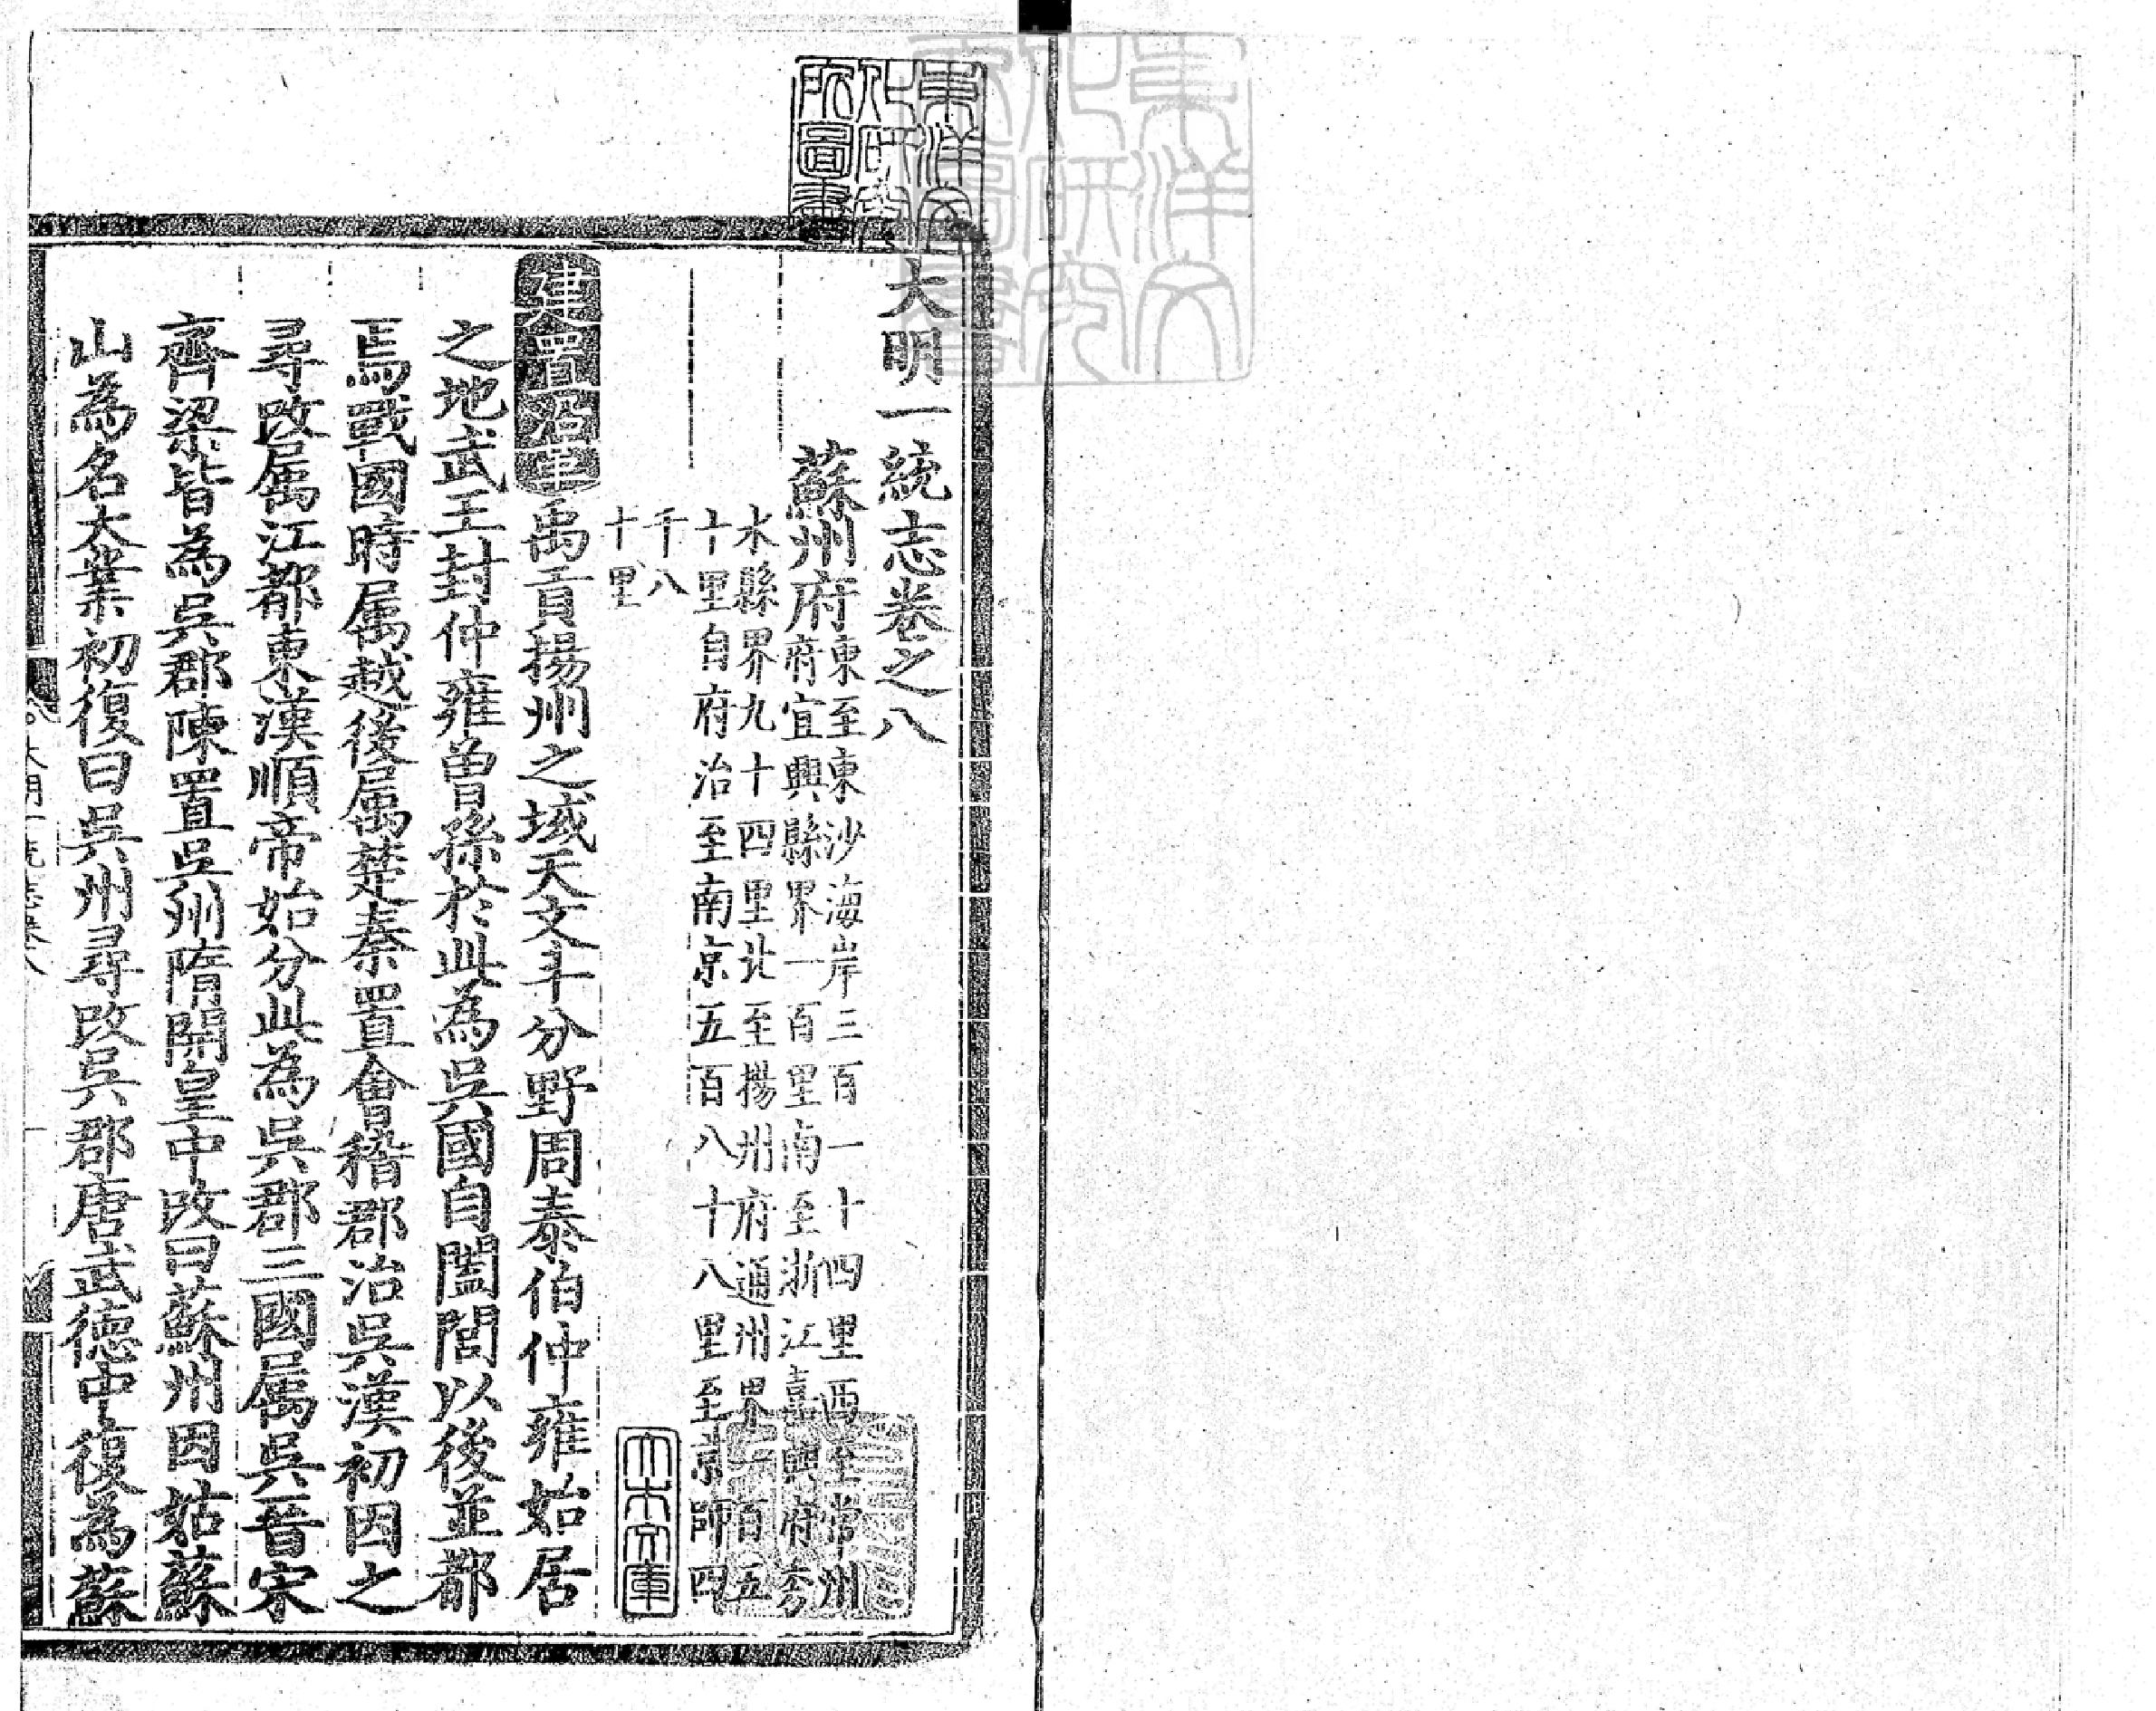 大明一統志卷之八
蘇州府
東至東沙海岸三百一十四里西至常州
府宜興縣界一百里南至浙江嘉興府秀
水縣界九十四里北至揚州府通州界一百五
十里自府治至南京五百八十八里至京師四
千八
十里
建置沿革禹貢揚州之域天文斗分野周泰伯仲雍始居
之地武王封仲雍曾孫於此為吳國自闔閭以後並都
焉戰國時属越後属楚秦置會稽郡治吳漢初因之
尋改属江都東漢順帝始分此為吳郡三國属吳晉宋
齊梁皆為吳郡陳置吳州隋開皇中改曰蘇州因姑蘇
山為名大業初復曰吳州尋改吳郡唐武德中復為蘇
大明一統志卷八
東洋文
化研究
院圖書
大木文庫